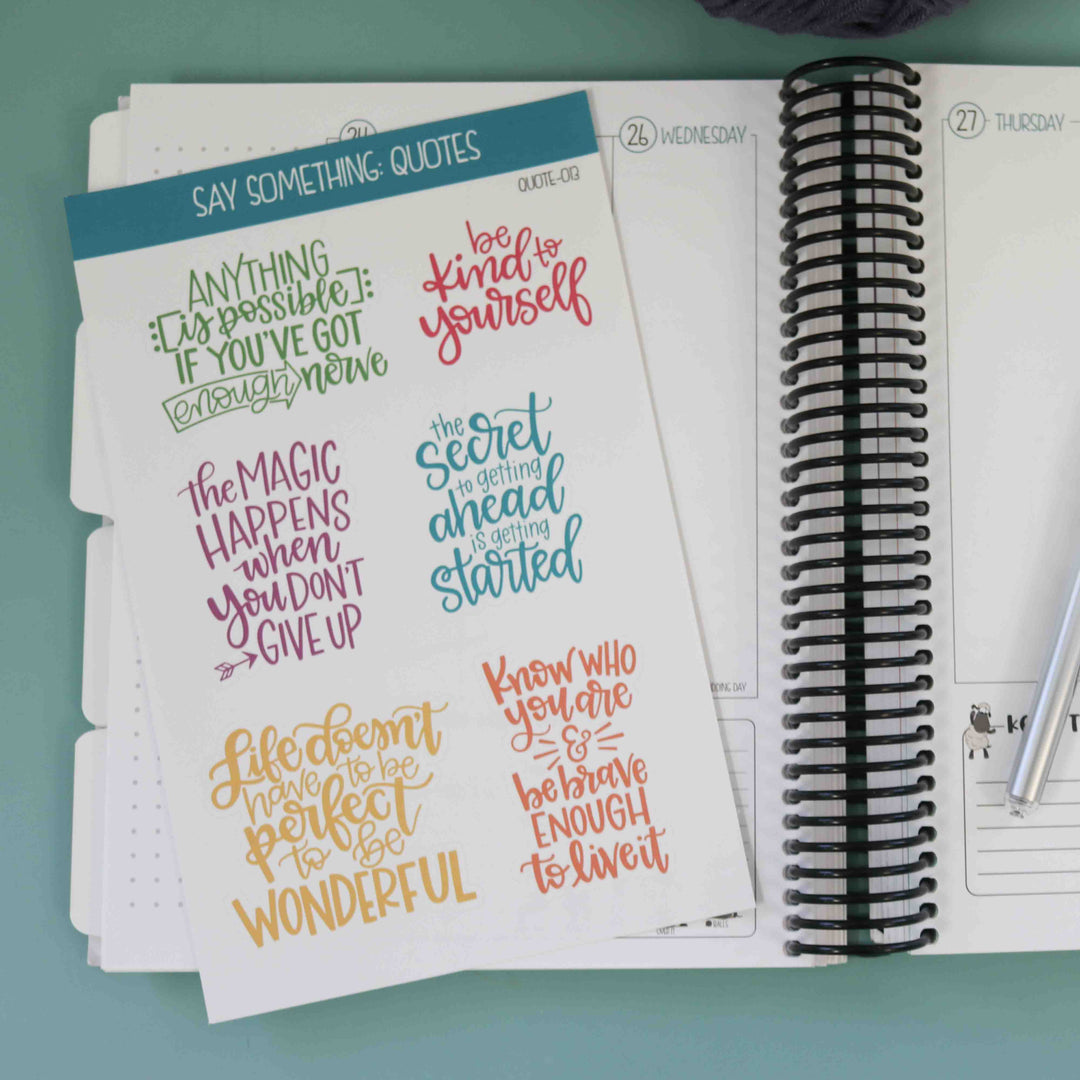 SAY SOMETHING: QUOTES
QUOTE-013
ANYTHING
[is possible]
IF YOU'VE GOT
enough nerve
be
kind to
yourself
the MAGIC
HAPPENS
when
you DON'T
GIVE UP
the
secret
to getting
ahead
is getting
started
Life doesn't
have to be
perfect
to be
WONDERFUL
Know WHO
you are
&
be brave
ENOUGH
to live it
26 WEDNESDAY
27 THURSDAY
DAY